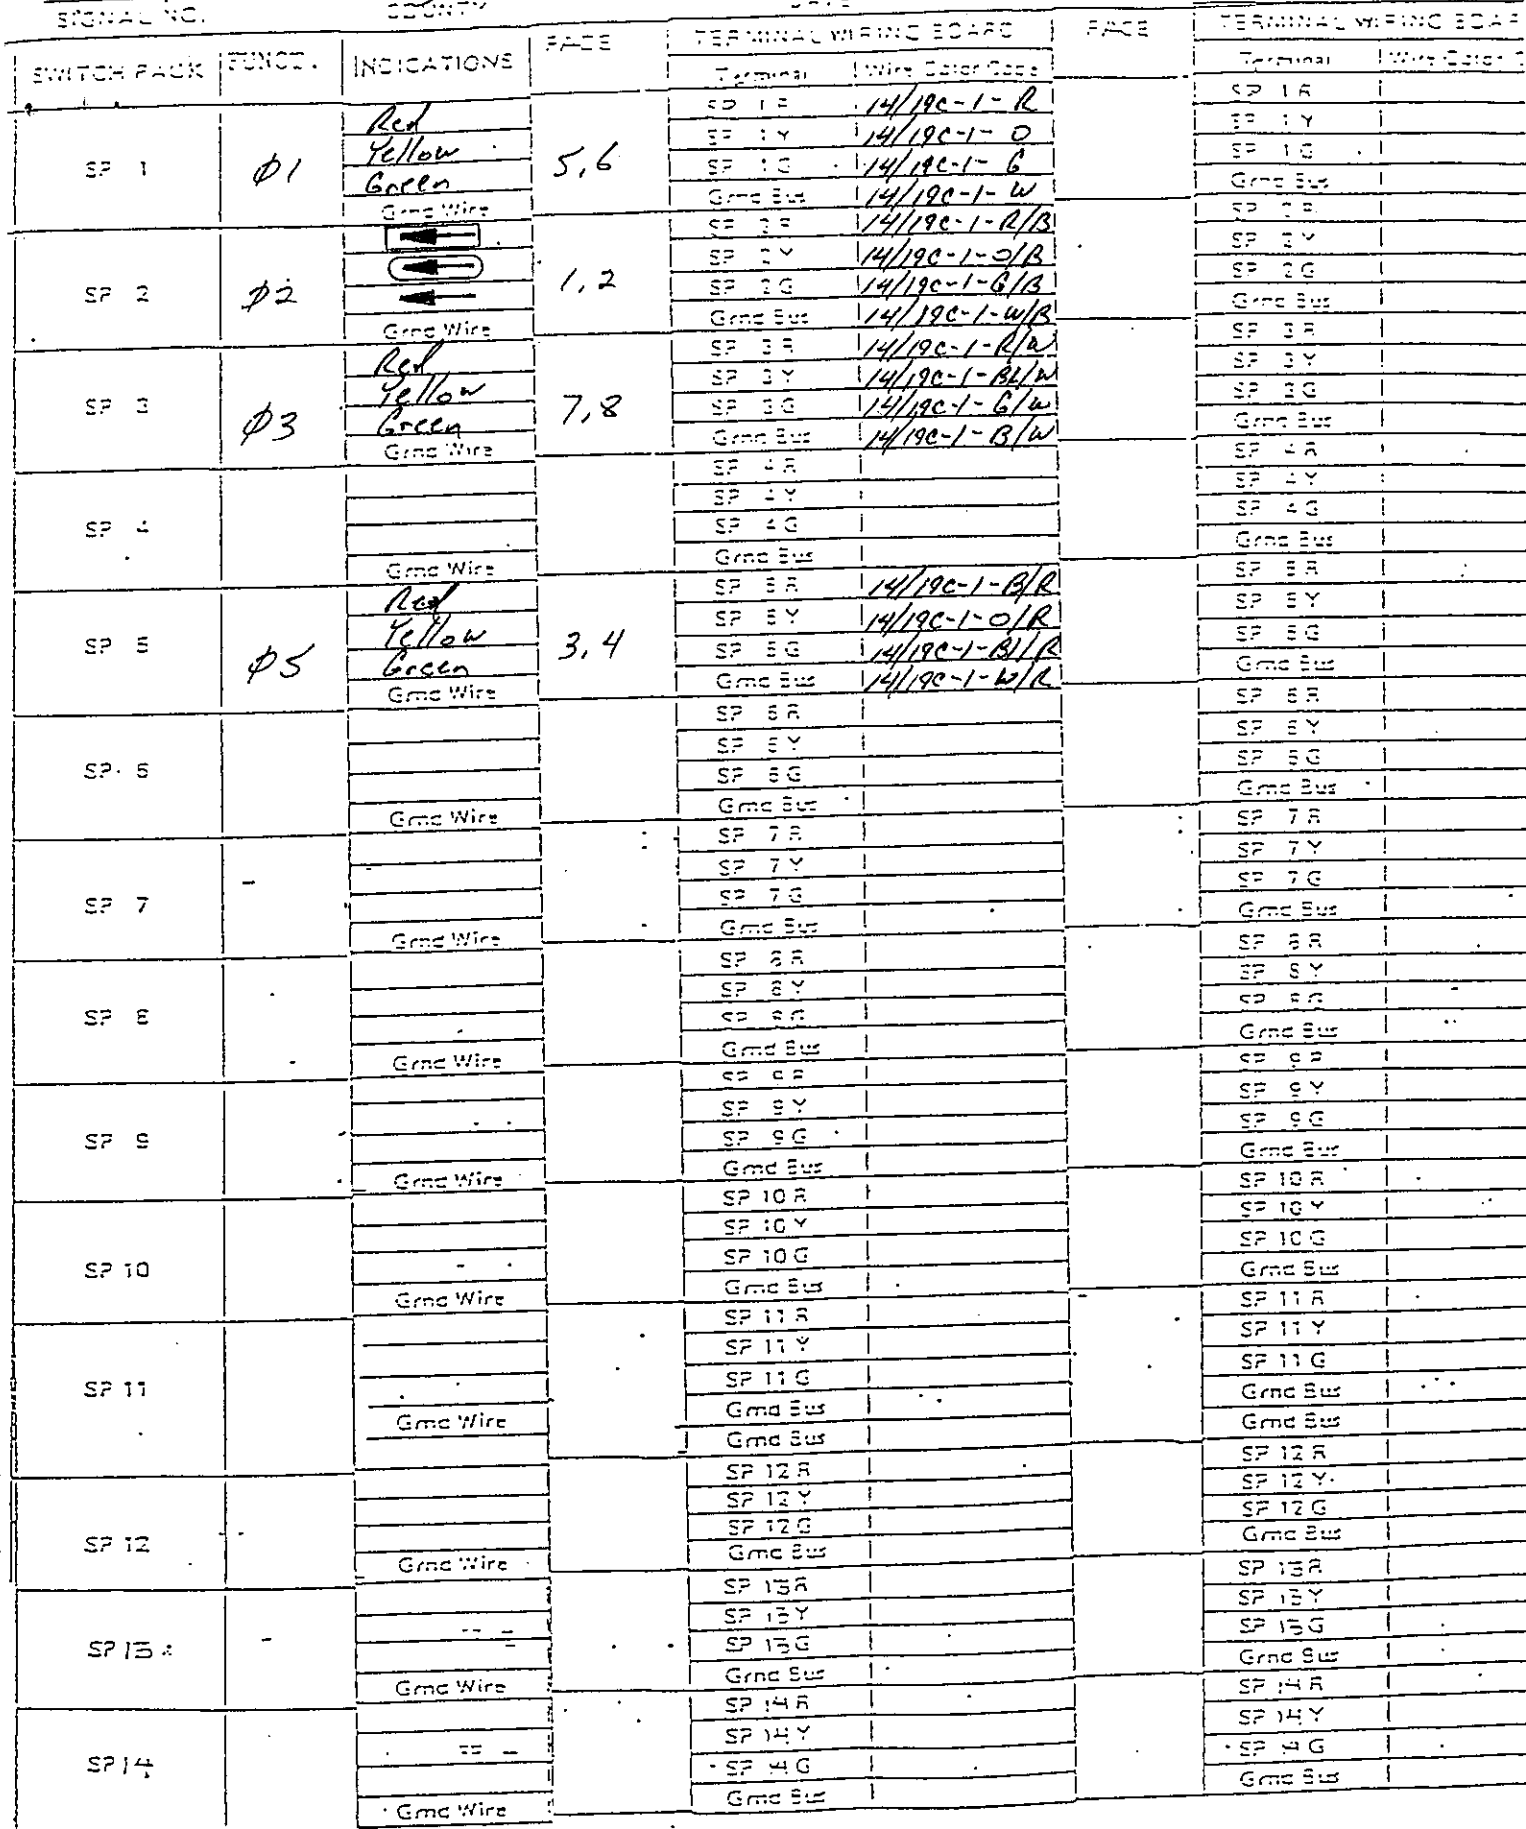 SIGNAL NO. COUNTY DATE
SWITCH PACK FUNCT. INDICATIONS FACE TERMINAL WIRING BOARD FACE TERMINAL WIRING BOAR
Terminal Wire Color Code Terminal Wire Color C
SP 1 Ø1 5,6
Red SP 1 R 14/19c-1-R SP 1 R
Yellow SP 1 Y 14/19c-1-O SP 1 Y
Green SP 1 G 14/19c-1-G SP 1 G
Grnd Wire Grnd Bus 14/19c-1-W Grnd Bus
SP 2 Ø2 1,2
SP 2 R 14/19c-1-R/B SP 2 R
SP 2 Y 14/19c-1-O/B SP 2 Y
SP 2 G 14/19c-1-G/B SP 2 G
Grnd Wire Grnd Bus 14/19c-1-W/B Grnd Bus
SP 3 Ø3 7,8
Red SP 3 R 14/19c-1-R/W SP 3 R
Yellow SP 3 Y 14/19c-1-BL/W SP 3 Y
Green SP 3 G 14/19c-1-G/W SP 3 G
Grnd Wire Grnd Bus 14/19c-1-B/W Grnd Bus
SP 4
SP 4 R SP 4 R
SP 4 Y SP 4 Y
SP 4 G SP 4 G
Grnd Wire Grnd Bus Grnd Bus
SP 5 Ø5 3,4
Red SP 5 R 14/19c-1-B/R SP 5 R
Yellow SP 5 Y 14/19c-1-O/R SP 5 Y
Green SP 5 G 14/19c-1-Bl/R SP 5 G
Grnd Wire Grnd Bus 14/19c-1-W/R Grnd Bus
SP 6
SP 6 R SP 6 R
SP 6 Y SP 6 Y
SP 6 G SP 6 G
Grnd Wire Grnd Bus Grnd Bus
SP 7
SP 7 R SP 7 R
SP 7 Y SP 7 Y
SP 7 G SP 7 G
Grnd Wire Grnd Bus Grnd Bus
SP 8
SP 8 R SP 8 R
SP 8 Y SP 8 Y
SP 8 G SP 8 G
Grnd Wire Grnd Bus Grnd Bus
SP 9
SP 9 R SP 9 R
SP 9 Y SP 9 Y
SP 9 G SP 9 G
Grnd Wire Grnd Bus Grnd Bus
SP 10
SP 10 R SP 10 R
SP 10 Y SP 10 Y
SP 10 G SP 10 G
Grnd Wire Grnd Bus Grnd Bus
SP 11
SP 11 R SP 11 R
SP 11 Y SP 11 Y
SP 11 G SP 11 G
Grnd Wire Grnd Bus Grnd Bus
Grnd Bus Grnd Bus
SP 12
SP 12 R SP 12 R
SP 12 Y SP 12 Y
SP 12 G SP 12 G
Grnd Wire Grnd Bus Grnd Bus
SP 13
SP 13 R SP 13 R
SP 13 Y SP 13 Y
SP 13 G SP 13 G
Grnd Wire Grnd Bus Grnd Bus
SP 14
SP 14 R SP 14 R
SP 14 Y SP 14 Y
SP 14 G SP 14 G
Grnd Wire Grnd Bus Grnd Bus